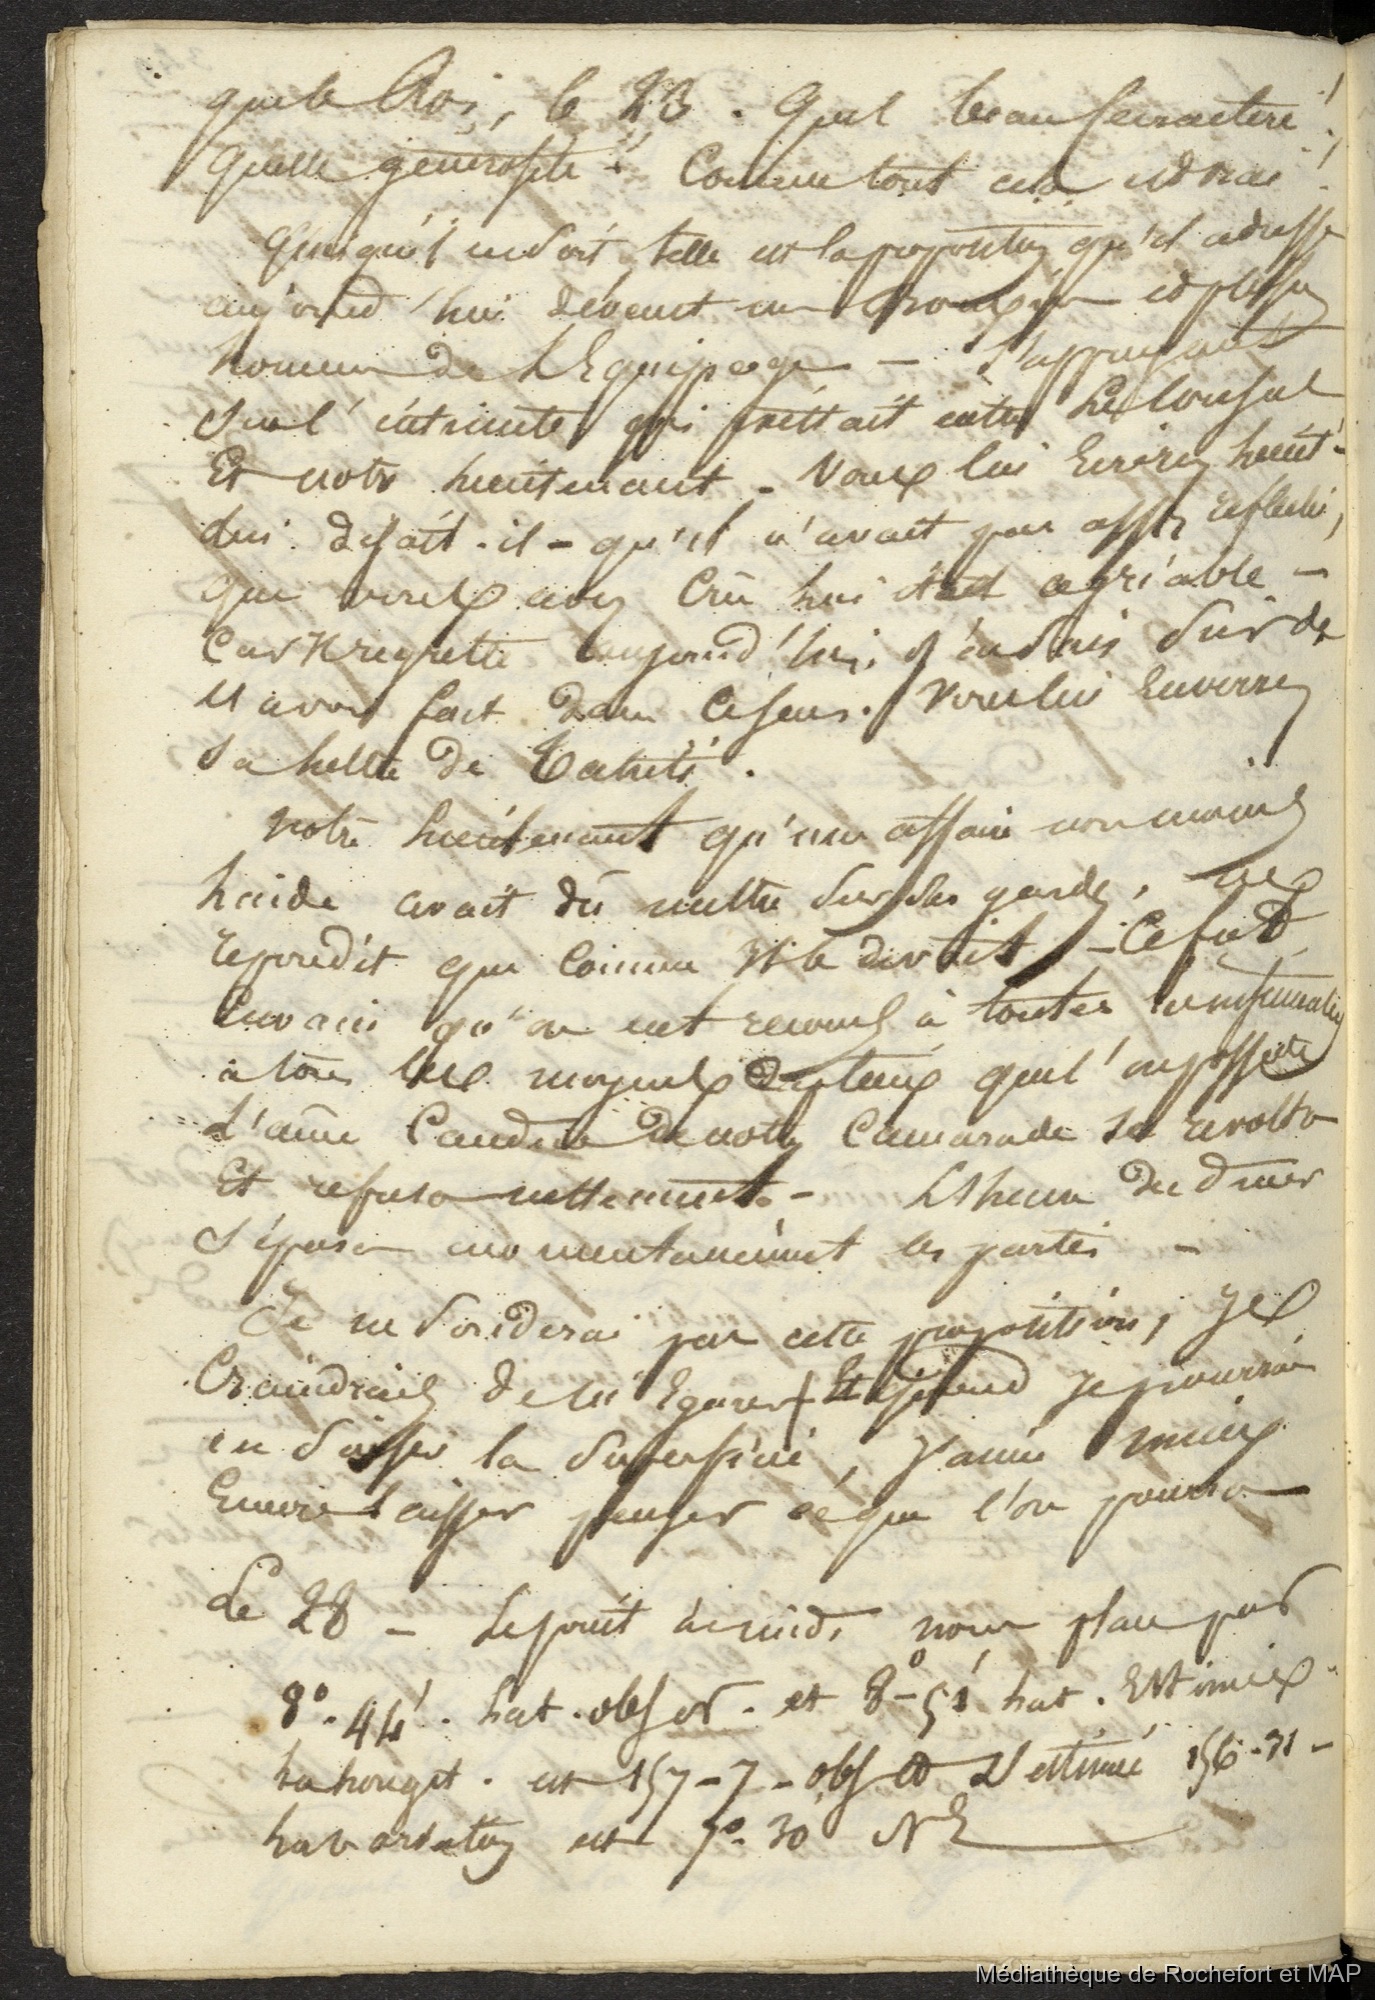 que le Roi, le 23. Quel beau Caractere!
Quelle générosité!! Comme tout cela est vrai!
Quoiqu'il en soit, telle est la proposition qu'il adresse
aujourd'hui devant un et plusieurs
hommes de L'Equipage – S'appuyant
sur l' qui entre Le Consul
Et notre Lieutenant. Vous lui Ecrirez Lieut-
lui disait-il – qu'il n'avait pas assez réfléchi,
que vous avez Crû lui être agréable –
Car Il regrette aujourd'hui, J'en suis sûr de
l'avoir fait dans Ce sens. Vous lui Enverrez
sa lettre de Tahiti.
Notre Lieutenant qu'une affaire non moins
laide avait dû mettre sur ses gardes, ne
repondit que comme Il le devait, – Ce fut
Envain qu'on eut recours à toutes
à tous les moyens que l'on possède
L'âme Candide de notre Camarade se révolta
Et refusa nettement. – L'heure du diner
sépara momentanément les partis –
Je ne sonderai pas cette proposition, Je
Craindrais de m'Egarer Et quand Je pourrai
en la superficie, J'aime mieux
Encore laisser penser ce que l'on pourra
Le 28 – Le point à midi nous place par
8°. 44'. Lat. observ. et 8°–51' Lat. Estimée.
La Longit. est 157–7– obs et L'estimée 156–31–
La variation est 7°. 30' NE
Médiathèque de Rochefort et MAP